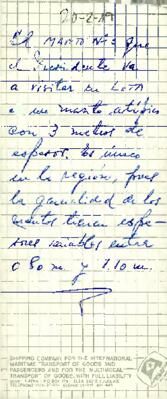 20-2-89
El MANTO Nº 3 que
el Presidente va
a visitar en LOTA
es un manto
con 3 metros de
espesor. Es único
en la región, pues
la generalidad de los
mantos tienen espe-
sores variables entre
0.80 m. y 1.10 m.
SHIPPING COMPANY FOR THE INTERNATIONAL
MARITIME TRANSPORT OF GOODS AND
PASSENGERS AND FOR THE MULTIMODAL
TRANSPORT OF GOODS, WITH FULL LIABILITY